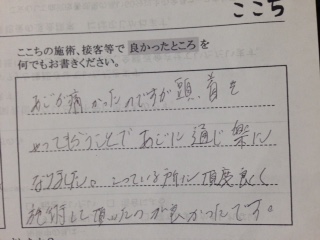 ここち
ここちの施術、接客等で良かったところを
何でもお書きください。
あごが痛かったのですが頭、首を
やってもらうことであごに通じ楽に
なりました。こっている所に丁度良く
施術して頂いたのが良かったです。